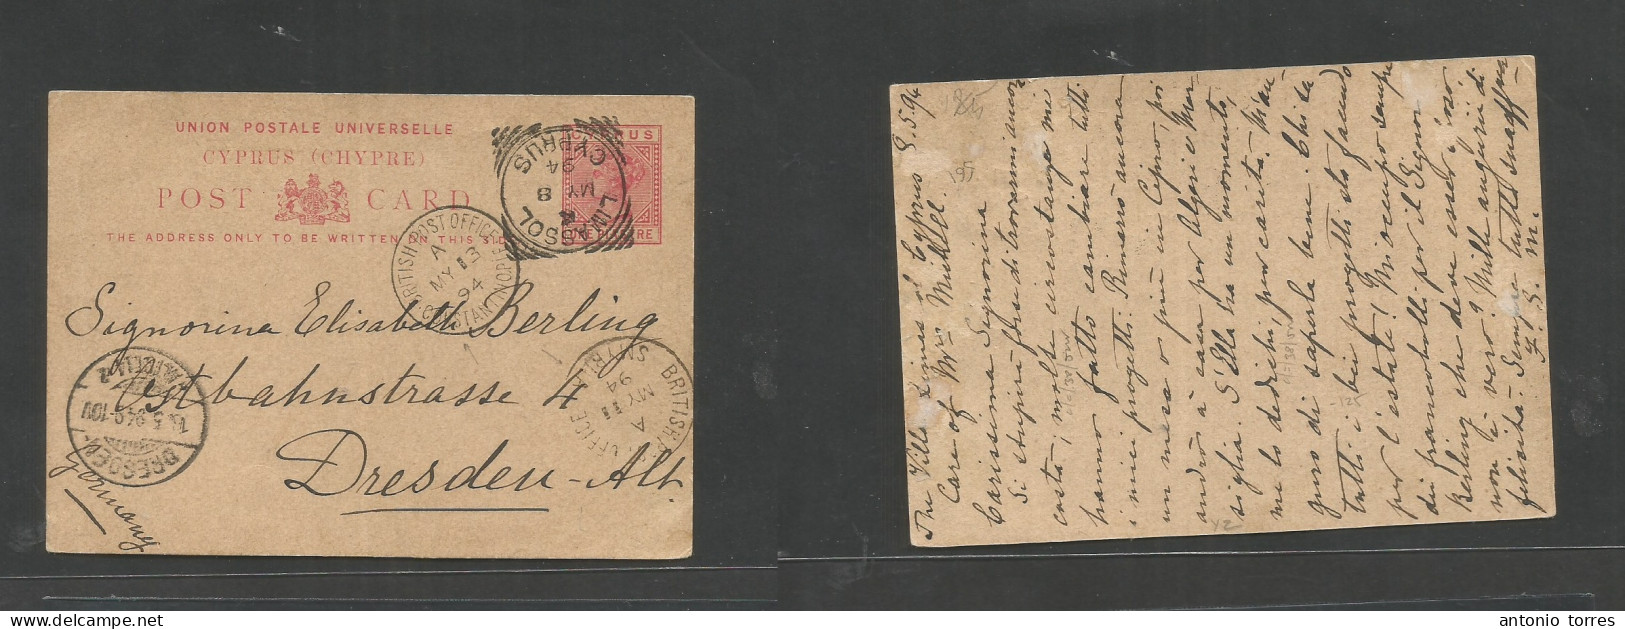 UNION POSTALE UNIVERSELLE
CYPRUS (CHYPRE)
POST CARD
THE ADDRESS ONLY TO BE WRITTEN ON THIS SIDE
CYPRUS
ONE PIASTRE
LIMASSOL
MY 8
94
CYPRUS
BRITISH POST OFFICE
A
MY 13
94
CONSTANTINOPLE
BRITISH POST OFFICE
A
MY 11
94
SMYRNA
DRESDEN
ALTST.
Signorina Elisabeth Berling
Westbahnstrasse 4
Dresden-Alt.
Germany
The Villa Limassol Cyprus 8.5.94
Care of Mrs Mitchell.
Carissima Signorina
Si stupirà forse di trovarmi ancora
costà; molte circostanze mi
hanno fatto cambiare tutti
i miei progetti. Rimarrò ancora
un mese o più in Cipro, poi
andrò a casa per Algeri e Mar-
siglia. S'Ella ha un momento,
me lo dedichi per carità. M'au-
guro di saperla bene. Chi sa
tutti i bei progetti sta facendo
per l'estate! Mi occupo sempre
dei francobolli per il Signor
Berling che deve esser
non è vero? Mille auguri di
felicità. Sempre tutto
F. S. M.
antonio torres